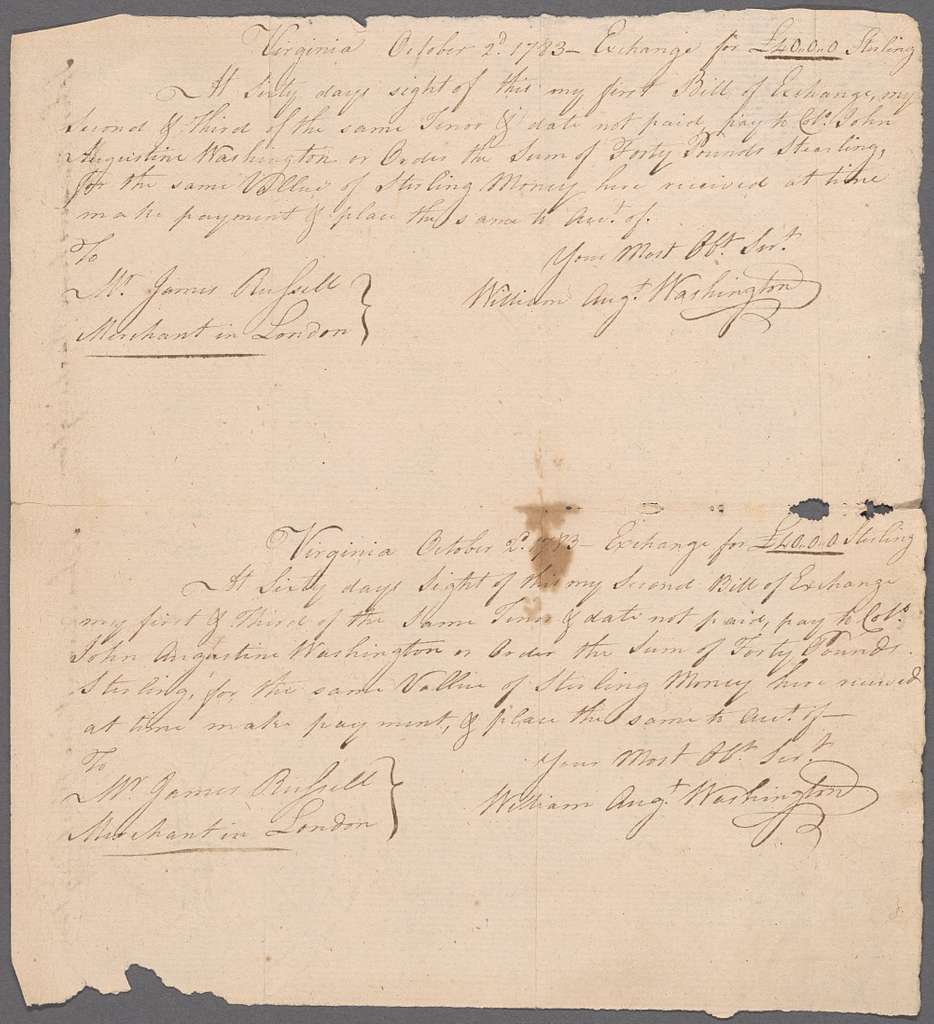 Virginia October 2d. 1783 – Exchange for £40..0..0 Sterling
At Sixty days sight of this my first Bill of Exchange, my
Second & Third of the same Tenor & date not paid, pay to Colo. John
Augustine Washington or Order the Sum of Forty Pounds Stearling,
for the same Vallue of Sterling Money here received at time
make payment & place the same to Acct. of.
Your Most Obt. Sert.
William Augt. Washington
To
Mr. James Russell
Merchant in London
Virginia October 2d. 1783 – Exchange for £40..0..0 Sterling
At Sixty days Sight of this my Second Bill of Exchange
my first & Third of the Same Tenor & date not paid, pay to Colo.
John Augustine Washington or Order the Sum of Forty Pounds
Sterling, for the same Vallue of Sterling Money here received
at time make payment, & place the same to Acct. of –
Your Most Obt. Sert.
William Augt. Washington
To
Mr. James Russell
Merchant in London